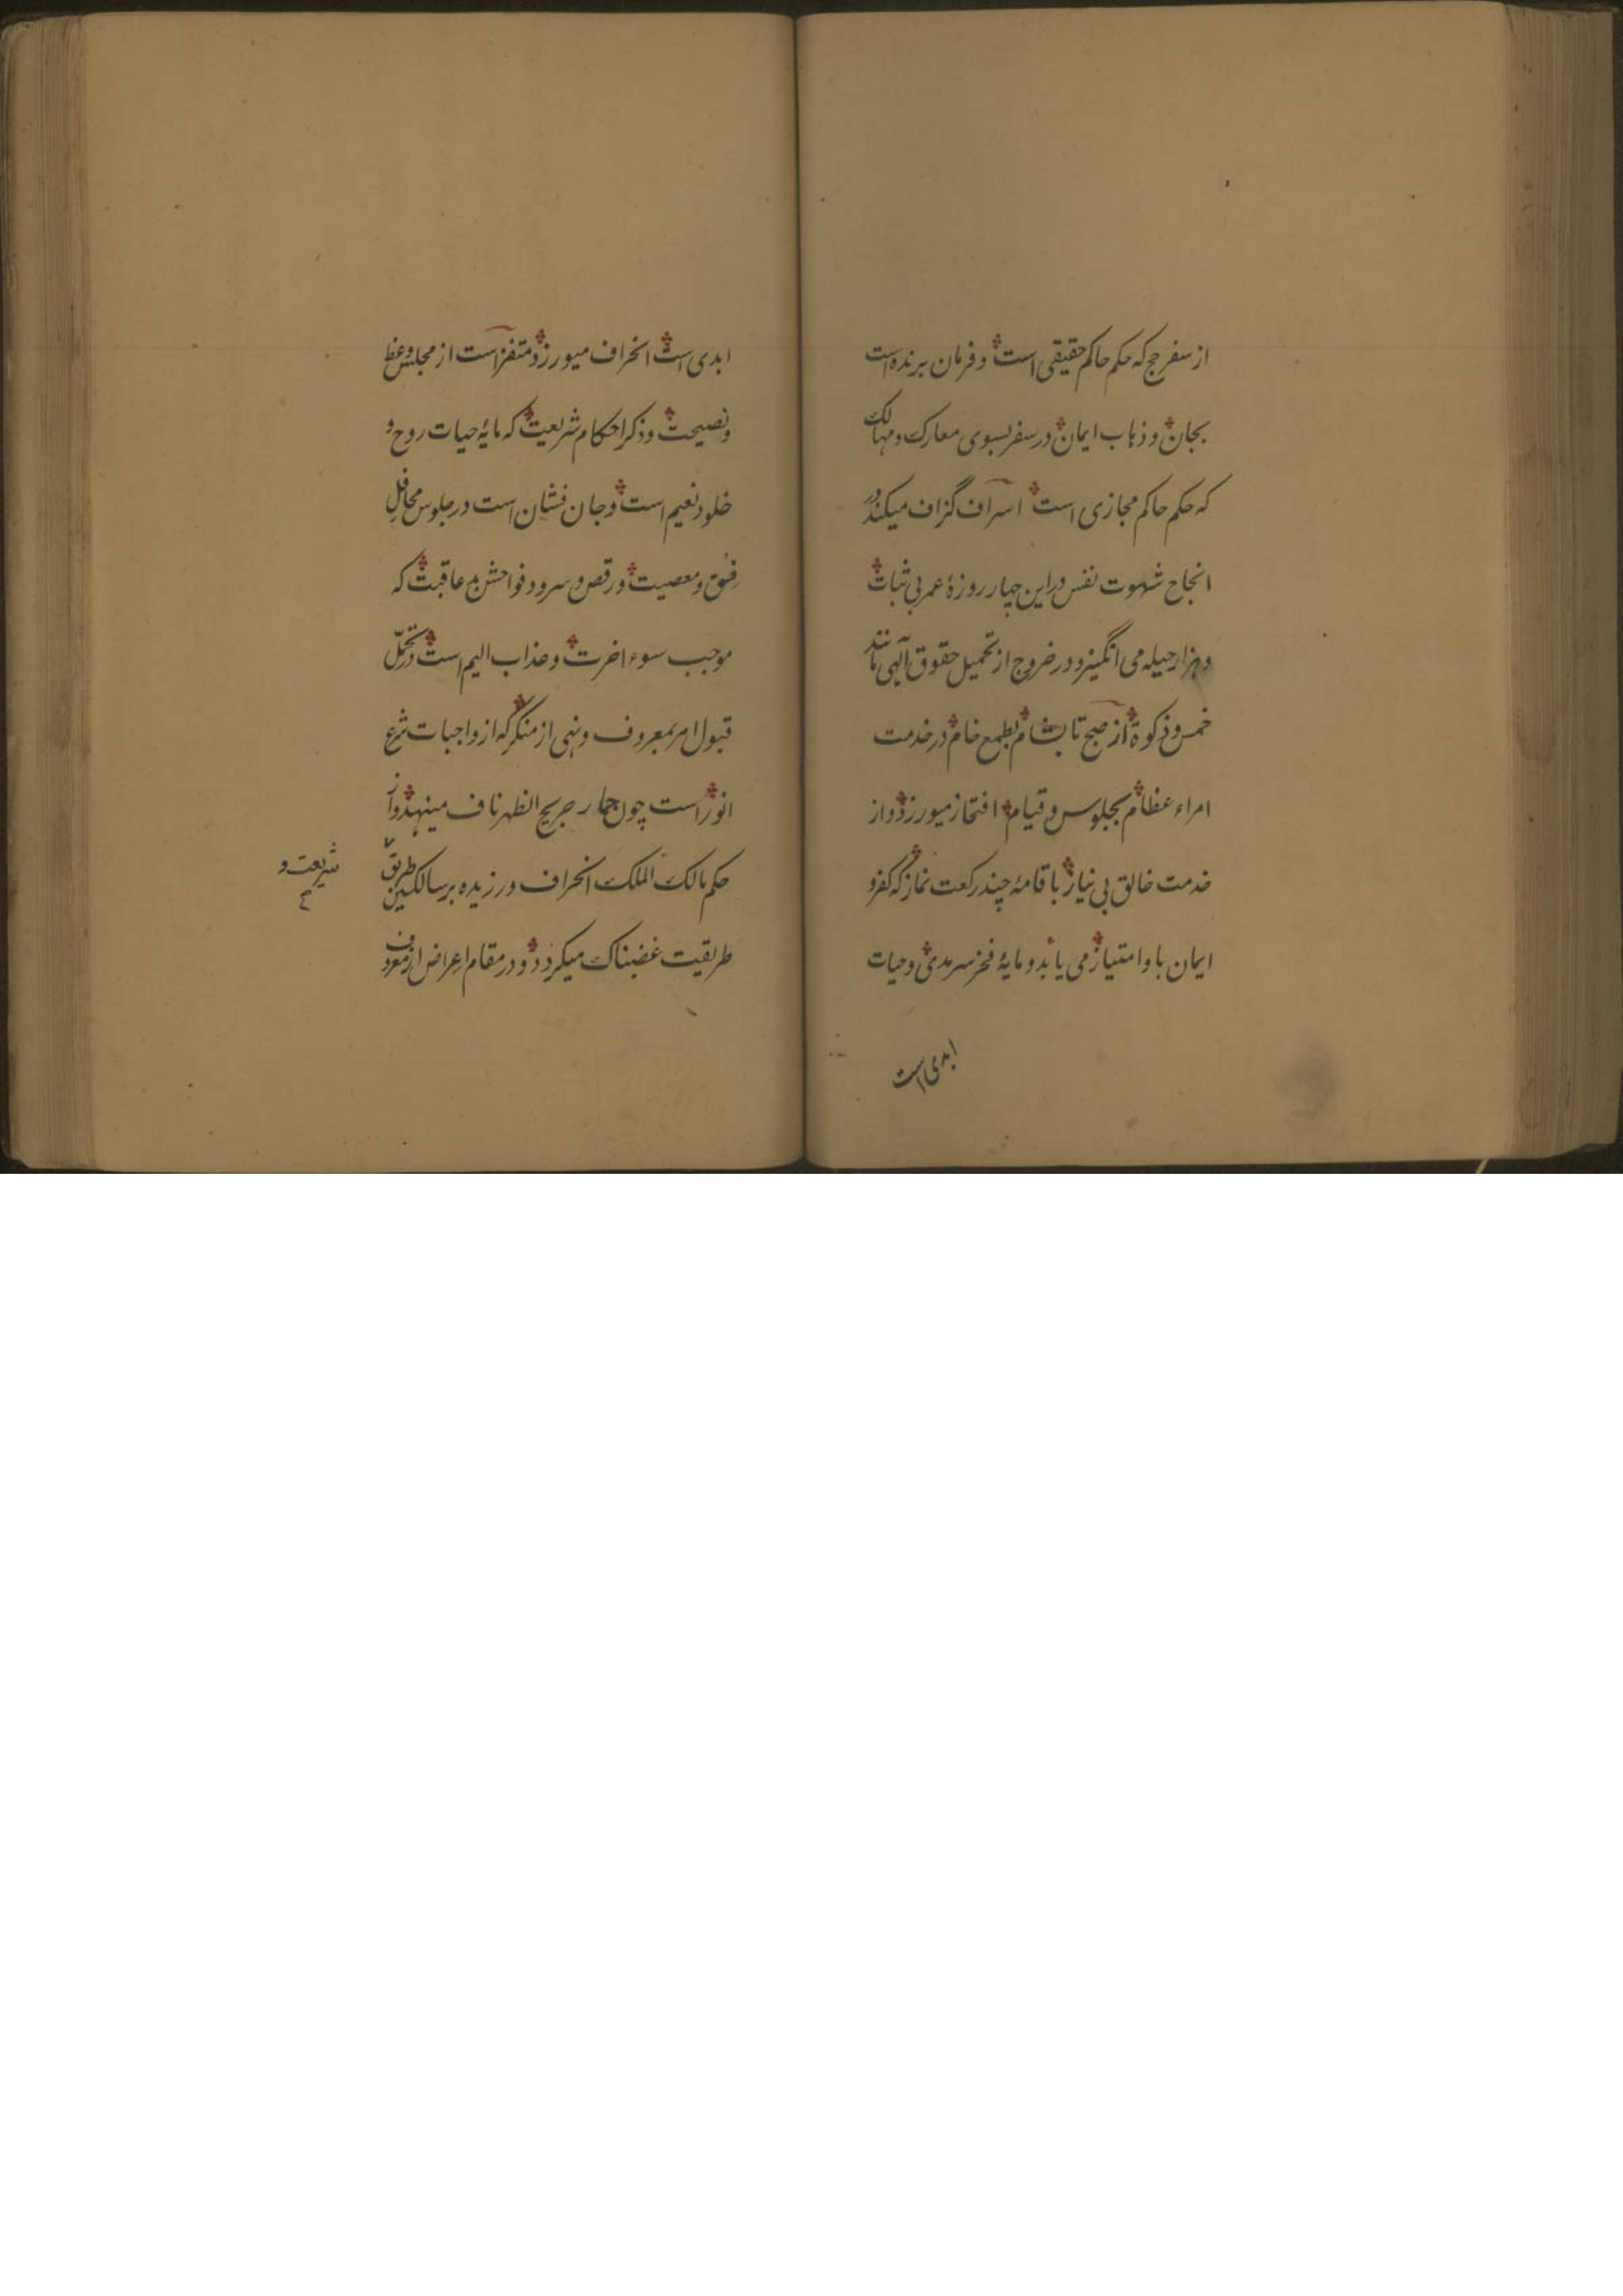 از سفر حج که حکم حاکم حقیقی است و فرمان برنده است
بجان و ذهاب ایمان در سفر بسوی معارک و مهالک
که حکم حاکم مجازی است اسراف گزاف میکند در
انجاح شهوت نفس در این چهار روزهٔ عمر بی ثبات
و هزار حیله می انگیزد در خروج از تحمیل حقوق آلهی مانند
خمس و زکوة از صبح تا بشام بطمع خام در خدمت
امراء عظام بجلوس و قیام افتخار میورزد و از
خدمت خالق بی نیاز باقامهٔ چند رکعت نماز که کفر و
ایمان باو امتیاز می یابد و مایهٔ فخر سرمدی و حیات
ابدی است
ابدی است انحراف میورزد متنفر است از مجلس وعظ
و نصیحت و ذکر احکام شریعت که مایهٔ حیات روح و
خلود نعیم است و جان فشان است در جلوس محافل
فسق و معصیت و رقص و سرود فواحش بد عاقبت که
موجب سوء اخرت و عذاب الیم است و در تحمّل
قبول امر بمعروف و نهی از منکر که از واجبات شرع
انور است چون حمار جریح الظهر ناف مینهد و از
حکم مالک الملک انحراف ورزیده بر سالکین طریق
شریعت و
طریقیت غضبناک میکردد و در مقام اعراض از معروف